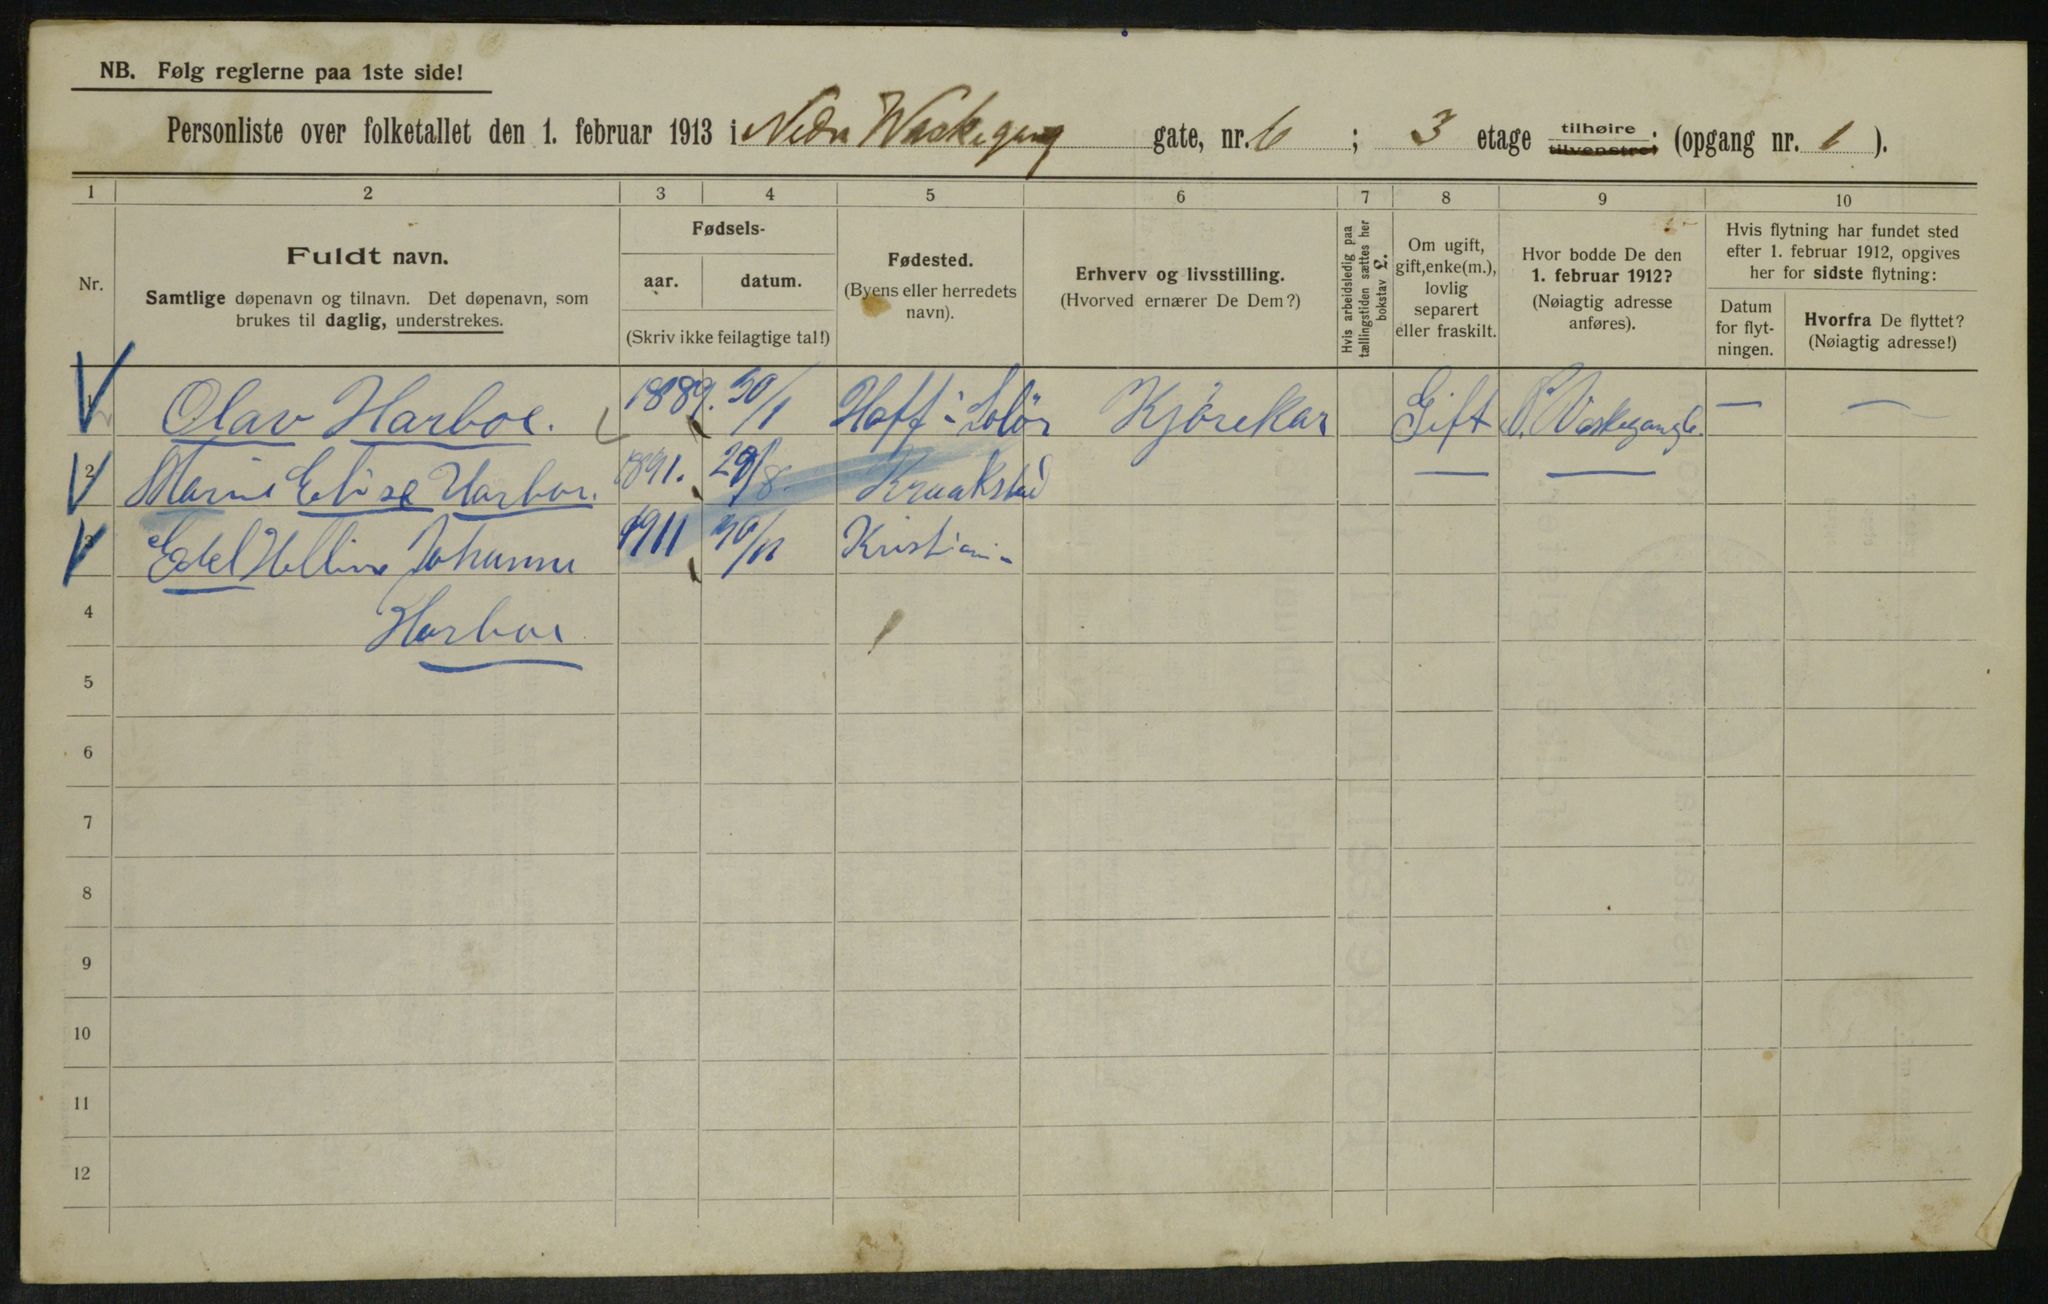 NB. Følg reglerne paa 1ste side!
Personliste over folketallet den 1. februar 1913 i Nedre Waskegang gate, nr. 6 ; 3 etage tilhøire tilvenstre; (opgang nr. 1 ).
1 2 3 4 5 6 7 8 9 10
Nr.
Fuldt navn.
Samtlige døpenavn og tilnavn. Det døpenavn, som
brukes til daglig, understrekes.
Fødsels-
aar. datum.
(Skriv ikke feilagtige tal!)
Fødested.
(Byens eller herredets
navn).
Erhverv og livsstilling.
(Hvorved ernærer De Dem?)
Hvis arbeidsledig paa
tællingstiden sættes her
bokstav L.
Om ugift,
gift, enke(m.),
lovlig
separert
eller fraskilt.
Hvor bodde De den
1. februar 1912?
(Nøiagtig adresse
anføres).
Hvis flytning har fundet sted
efter 1. februar 1912, opgives
her for sidste flytning:
Datum
for flyt-
ningen.
Hvorfra De flyttet?
(Nøiagtig adresse!)
1 Olav Harboe. 1889. 30/1 Hoff - Solör Kjörekar Gift N. Vaskegang 6. — —
2 Marie Elise Harboe. 1891. 29/8. Kraakstad — —
3 Edel Helline Johanne 1911 30/11 Kristiania
4 Harboe
5
6
7
8
9
10
11
12